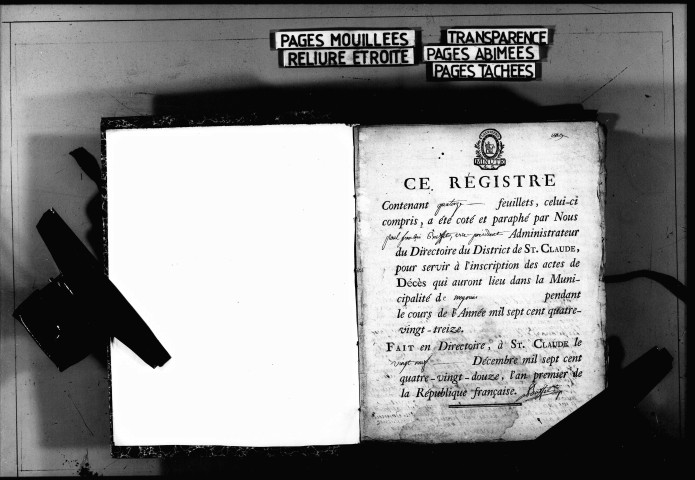 PAGES MOUILLEES
RELIURE ETROITE
TRANSPARENCE
PAGES ABIMEES
PAGES TACHEES
MINUTE
CE RÉGISTRE
Contenant quatorze feuillets, celui-ci
compris, a été coté et paraphé par Nous
vice président Administrateur
du Directoire du District de ST. CLAUDE,
pour servir à l'inscription des actes de
Décès qui auront lieu dans la Muni-
cipalité de pendant
le cours de l'Année mil sept cent quatre-
vingt-treize.
FAIT en Directoire, à ST. CLAUDE le
vingt neuf Décembre mil sept cent
quatre-vingt-douze, l'an premier de
la République française.